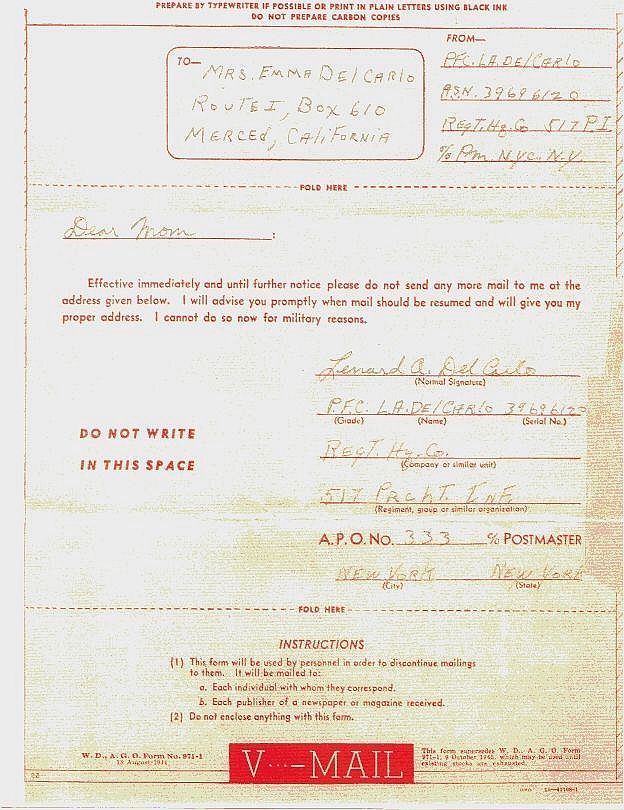 PREPARE BY TYPEWRITER IF POSSIBLE OR PRINT IN PLAIN LETTERS USING BLACK INK
DO NOT PREPARE CARBON COPIES
TO—
MRS. EMMA DEL CARLO
ROUTE 1, BOX 610
MERCED, CALIFORNIA
FROM—
PFC. L.A. DEL CARLO
ASN. 39696120
REGT. Hq. Co 517 P.I.
% Pm. N.Y.C. N.Y.
FOLD HERE
Dear Mom :
Effective immediately and until further notice please do not send any more mail to me at the
address given below. I will advise you promptly when mail should be resumed and will give you my
proper address. I cannot do so now for military reasons.
Lenard A. Del Carlo
(Normal Signature)
P.F.C. L.A. DEL CARLO 39696120
(Grade) (Name) (Serial No.)
DO NOT WRITE
IN THIS SPACE
REGT. Hq. Co.
(Company or similar unit)
517 PRCHT. INF.
(Regiment, group or similar organization)
A.P.O. No. 333 % POSTMASTER
NEW YORK NEW YORK
(City) (State)
FOLD HERE
INSTRUCTIONS
(1) This form will be used by personnel in order to discontinue mailings
to them. It will be mailed to:
a. Each individual with whom they correspond.
b. Each publisher of a newspaper or magazine received.
(2) Do not enclose anything with this form.
W. D., A. G. O. Form No. 971-1
13 August 1944
V···—MAIL
This form supersedes W. D., A. G. O. Form
971-1, 9 October 1943, which may be used until
existing stocks are exhausted.